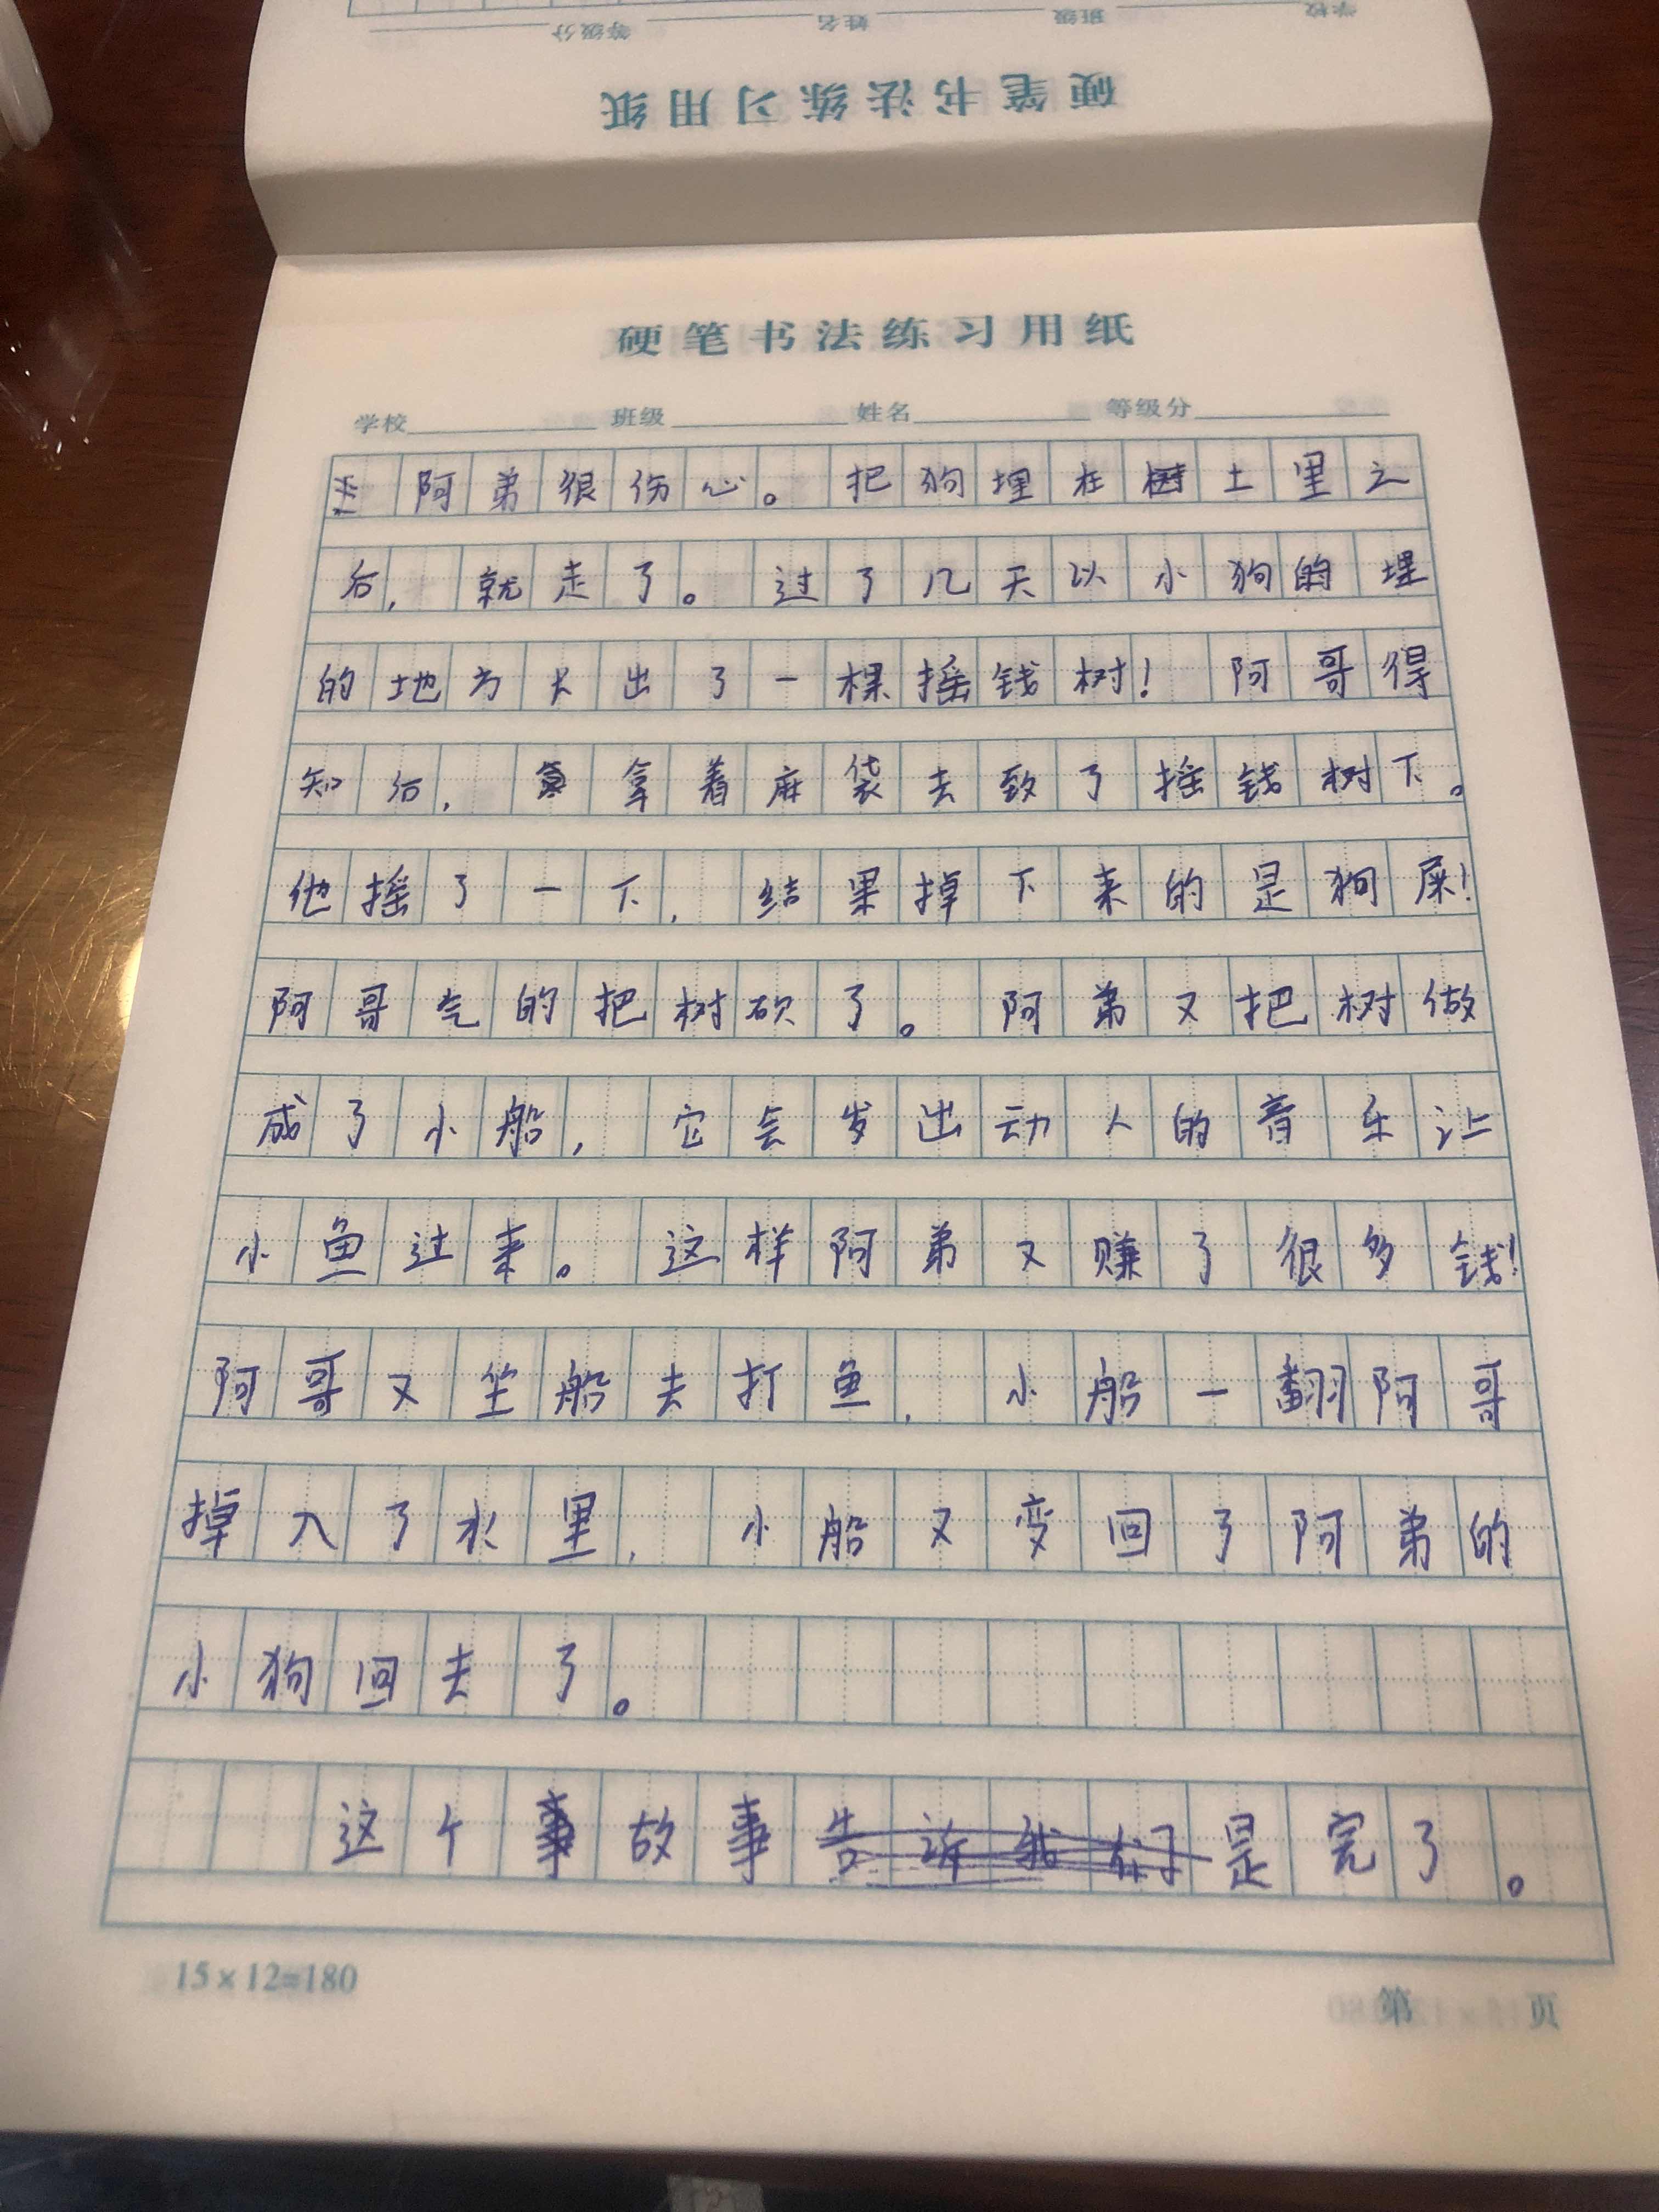 学校 班级 姓名 等级分
硬笔书法练习用纸
硬笔书法练习用纸
学校 班级 姓名 等级分
阿弟很伤心。把狗埋在土里之
后，就走了。过了几天以小狗的埋
的地方长出了一棵摇钱树！阿哥得
知后，拿着麻袋去致了摇钱树下。
他摇了一下，结果掉下来的是狗屎！
阿哥气的把树砍了。阿弟又把树做
成了小船，它会发出动人的音乐让
小鱼过来。这样阿弟又赚了很多钱！
阿哥又坐船去打鱼，小船一翻阿哥
掉入了水里，小船又变回了阿弟的
小狗回去了。
这个故事告诉我们是完了。
15×12=180
第 页